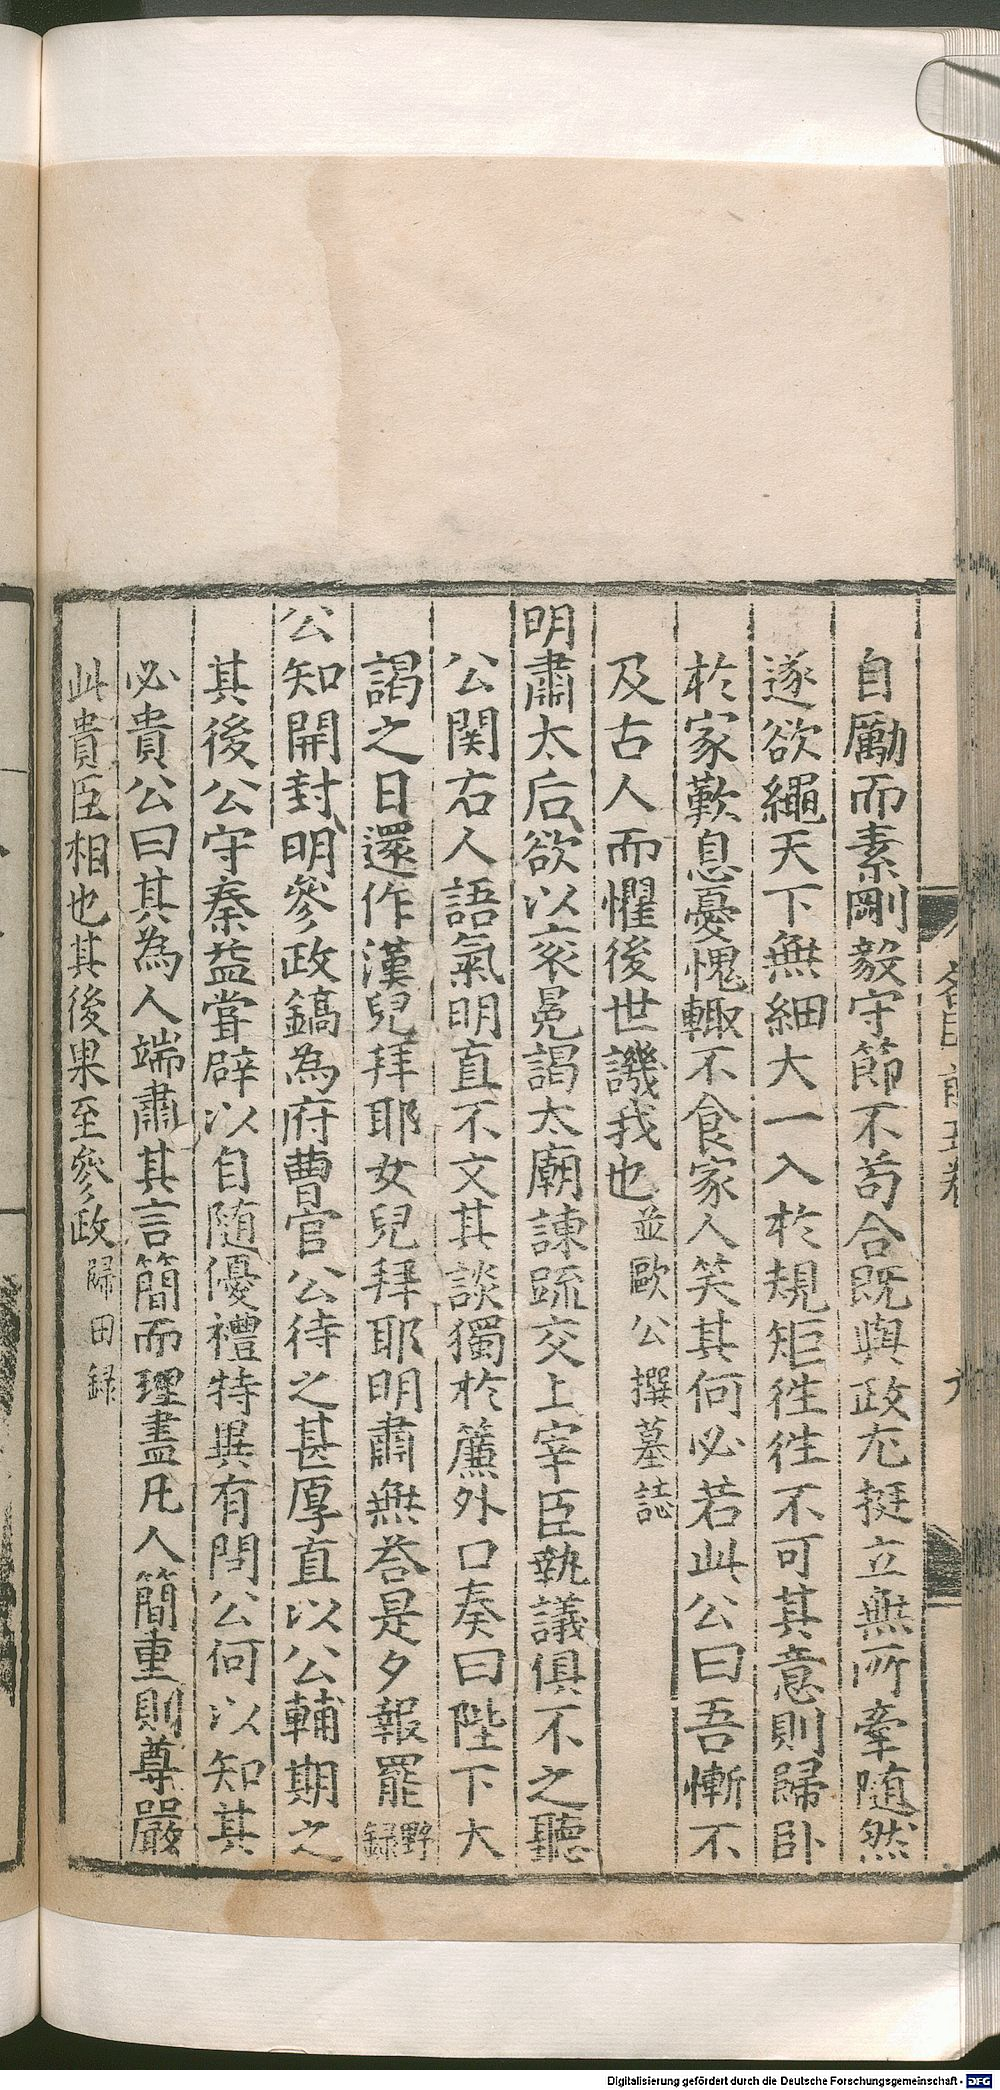 自勵而素剛毅守節不苟合既與政尤挺立無所牽随然
遂欲繩天下無細大一入於規矩徃徃不可其意則歸卧
於家歎息憂愧輙不食家人笑其何必若此公曰吾慚不
及古人而懼後世譏我也並歐公撰墓誌
明肅太后欲以衮冕謁太廟諫䟽交上宰臣執議俱不之聽
公関右人語氣明直不文其談獨於簾外口奏曰陛下大
謁之日還作漢兒拜耶女兒拜耶明肅無荅是夕報罷野録
公知開封明參政鎬為府曹官公待之甚厚直以公輔期之
其後公守秦益甞辟以自随優禮特異有問公何以知其
必貴公曰其為人端肅其言簡而理盡凡人簡重則尊嚴
此貴臣相也其後果至參政歸田録
Digitalisierung gefördert durch die Deutsche Forschungsgemeinschaft - DFG